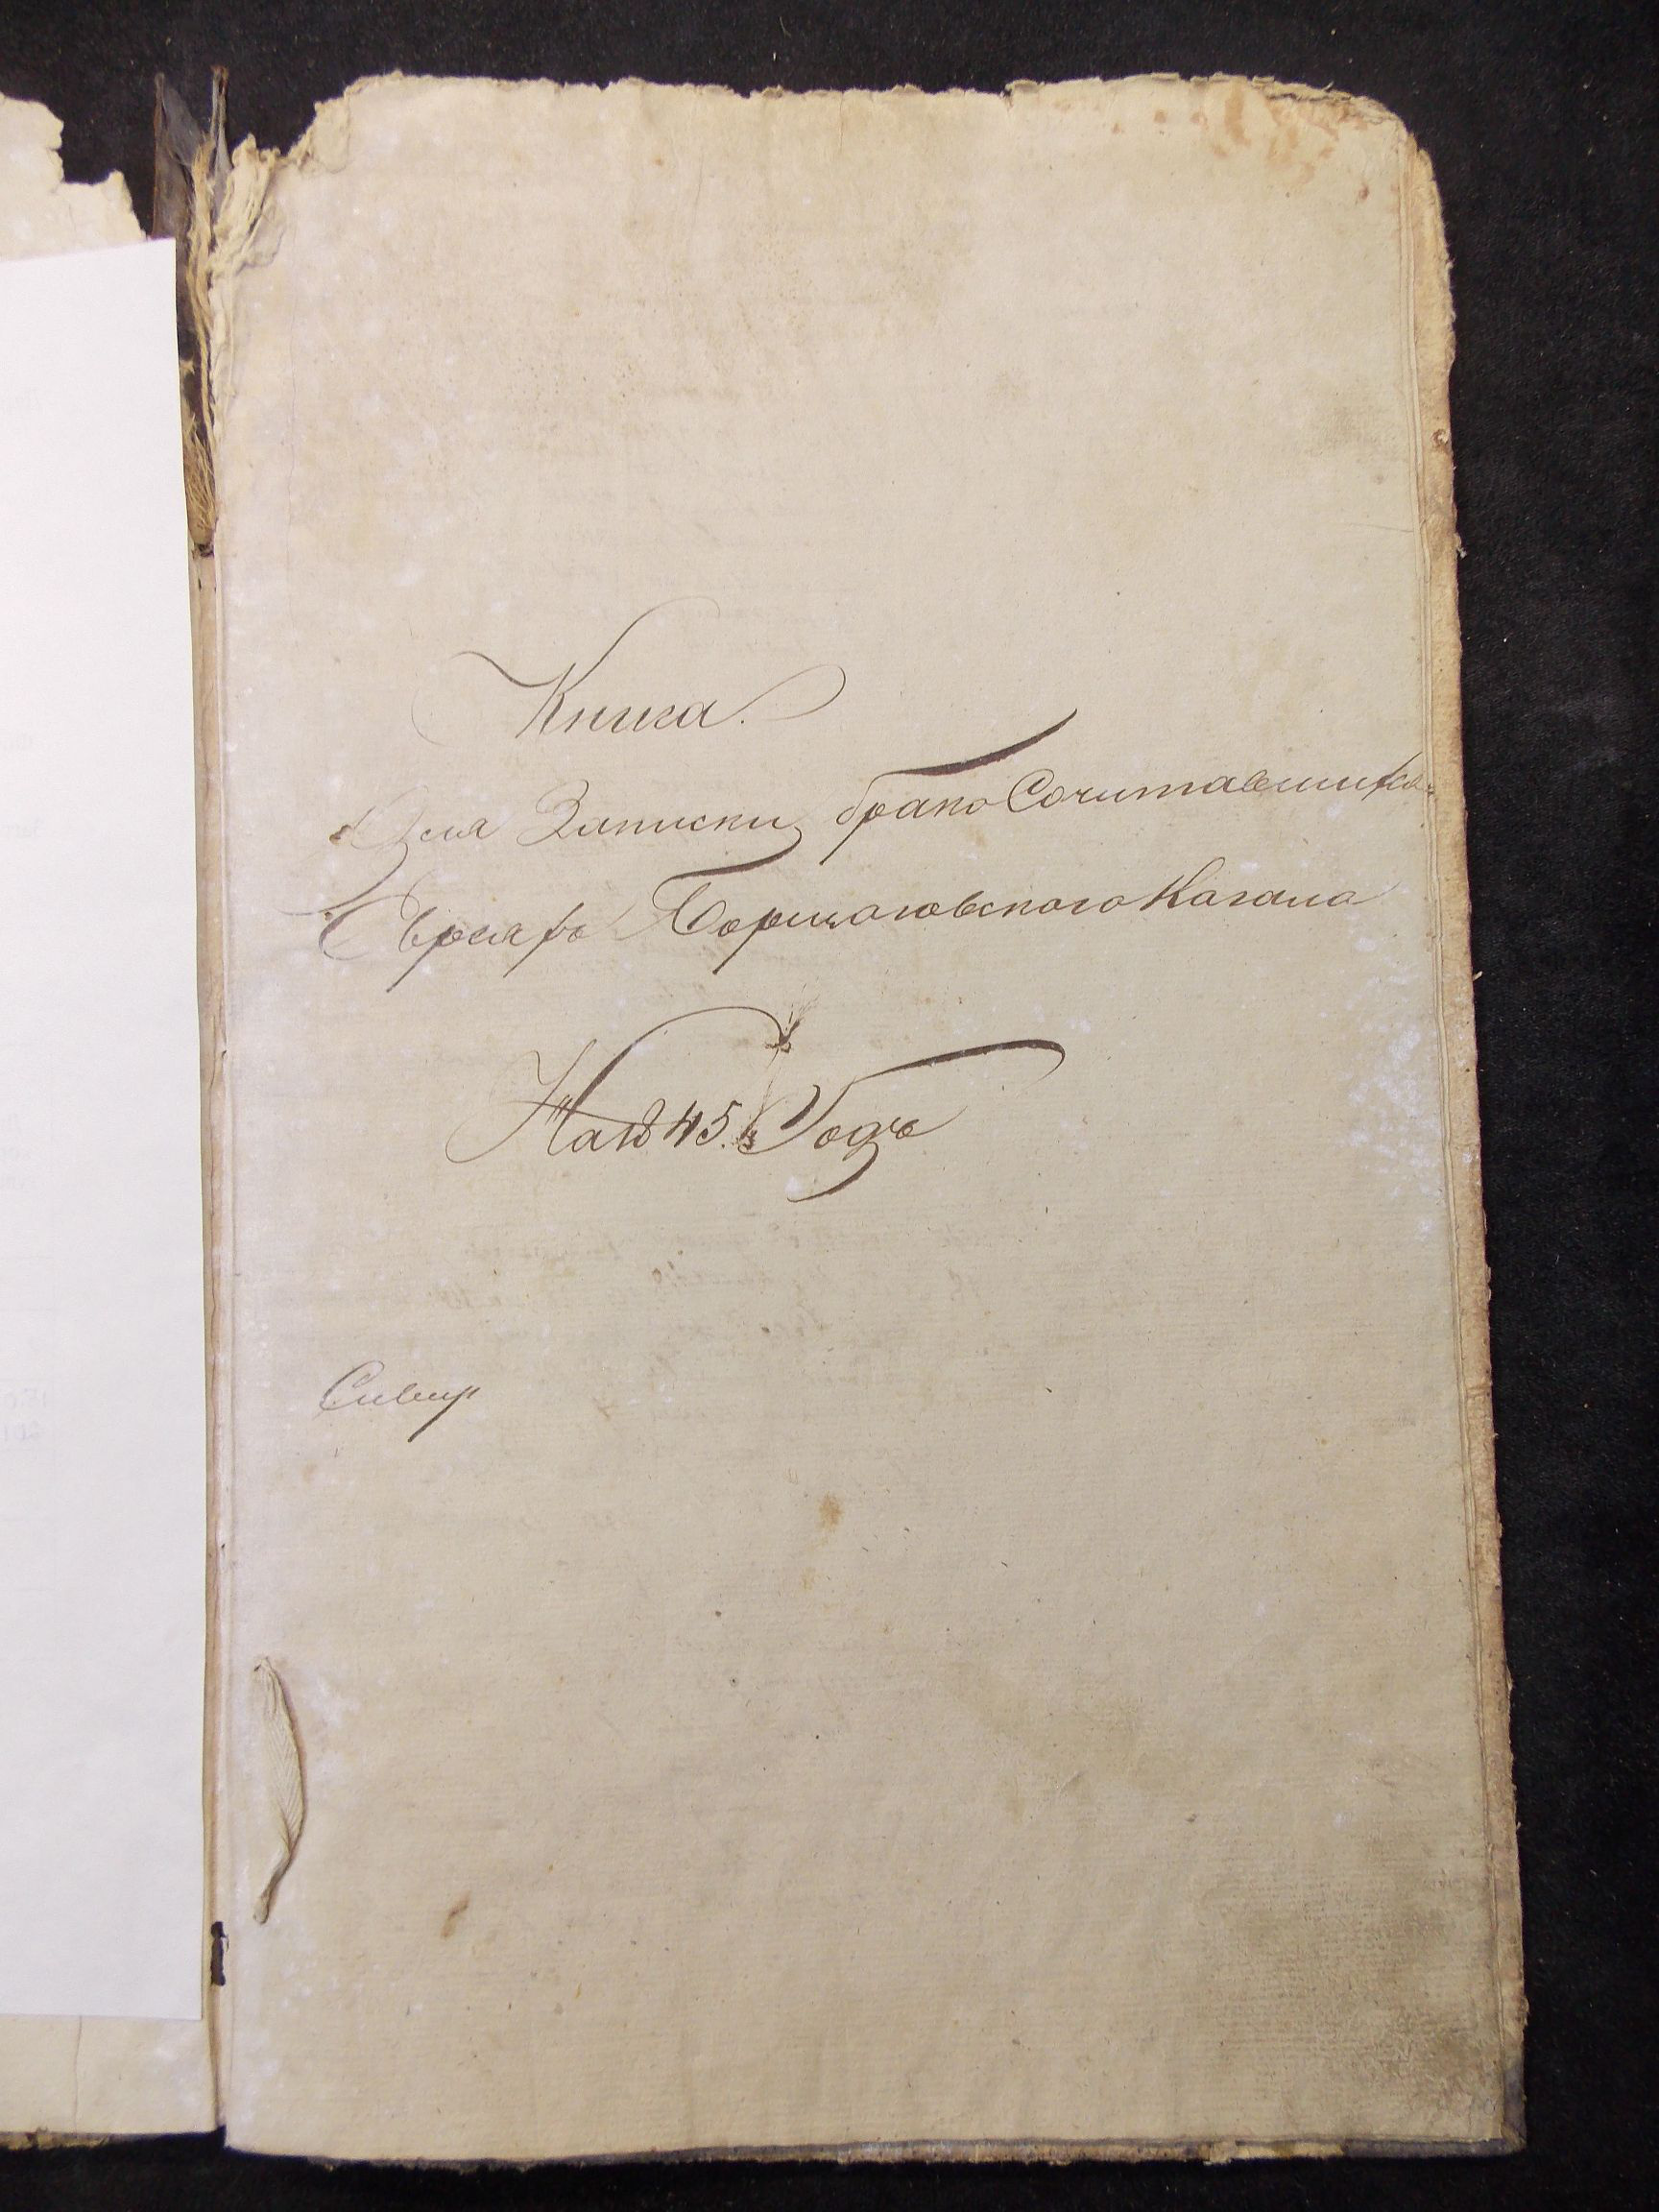 Книга.
Для Записки брако Сочитавшихся
Евреяхъ Борщаговского Кагала
На 1845. Годъ